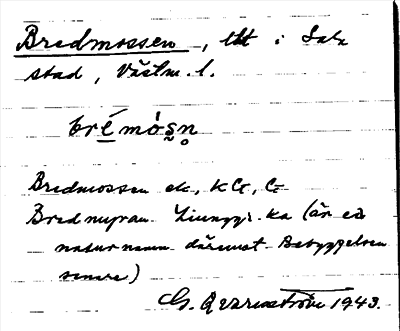 Bredmossen, tkt i Sala
stad, Västm. l.
brémòsn
Bredmossen ek, KG, G
Bredmyran Ljunggr. ka (är ej
naturnamn däremot. Bebyggelsen
senare)
G. Qvarnström 1943.